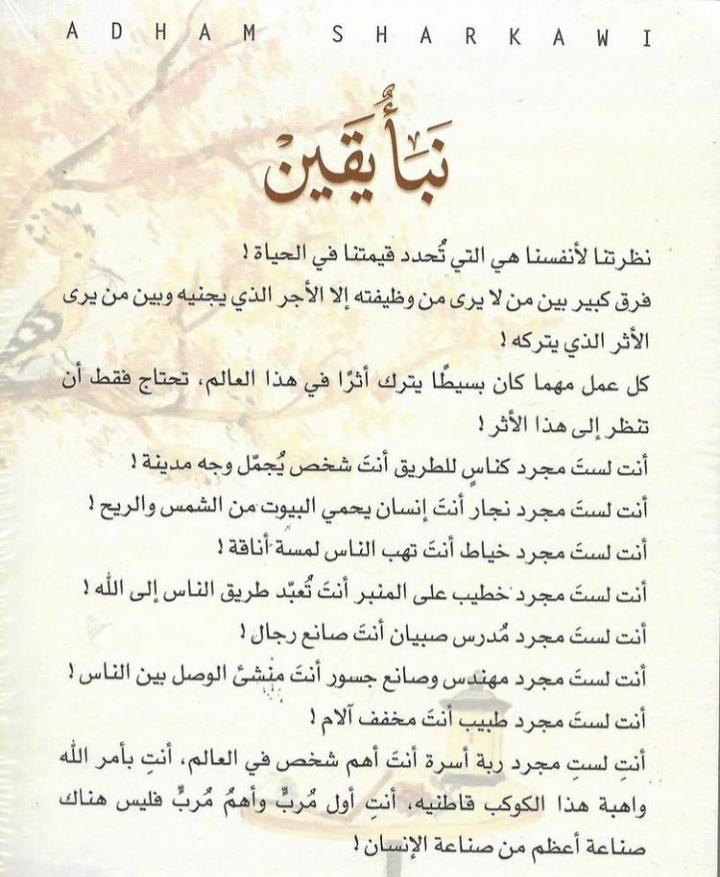 ADHAM SHARKAWI
نَبَأُ يَقَين
نظرتنا لأنفسنا هي التي تُحدد قيمتنا في الحياة !
فرق كبير بين من لا يرى من وظيفته إلا الأجر الذي يجنيه وبين من يرى
الأثر الذي يتركه !
كل عمل مهما كان بسيطًا يترك أثرًا في هذا العالم، تحتاج فقط أن
تنظر إلى هذا الأثر !
أنت لستَ مجرد كناسٍ للطريق أنتَ شخص يُجمّل وجه مدينة !
أنت لستَ مجرد نجار أنتَ إنسان يحمي البيوت من الشمس والريح !
أنت لستَ مجرد خياط أنتَ تهب الناس لمسة أناقة !
أنت لستَ مجرد خطيب على المنبر أنتَ تُعبّد طريق الناس إلى الله !
أنت لستَ مجرد مُدرس صبيان أنتَ صانع رجال !
أنت لستَ مجرد مهندس وصانع جسور أنتَ منشئ الوصل بين الناس !
أنت لستَ مجرد طبيب أنتَ مخفف آلام !
أنتِ لستِ مجرد ربة أسرة أنتَ أهم شخص في العالم، أنتِ بأمر الله
واهبة هذا الكوكب قاطنيه، أنتِ أول مُربٍّ وأهمُ مُربٍّ فليس هناك
صناعة أعظم من صناعة الإنسان !